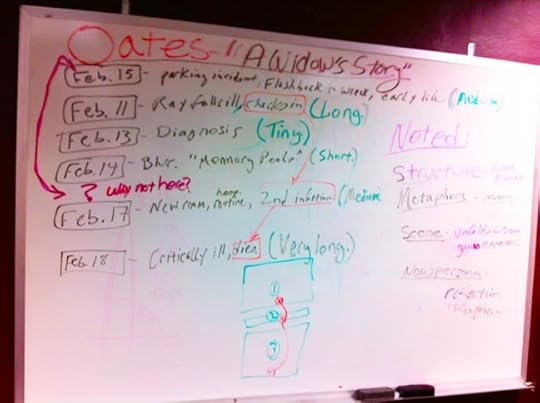 Oates - "A Widow's Story"
Feb. 15 - parking incident, Flashback 1 week, early life (Medium)
Feb. 11 - Ray falls ill, checks in (Long)
Feb. 13 - Diagnosis (Tiny)
Feb. 14 - "Memory Pools" (Short)
? Why not here?
Feb. 17 - New room, hosp. routine, 2nd infection (Medium)
Feb. 18 - Critically ill, dies (Very long.)
1
2
3
Noted:
Structure -
Metaphors - many
Scene -
Now persona -
reflection